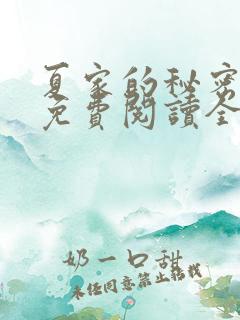 夏家的秘密
免費閱讀全
奶一口甜
未经同意禁止转载